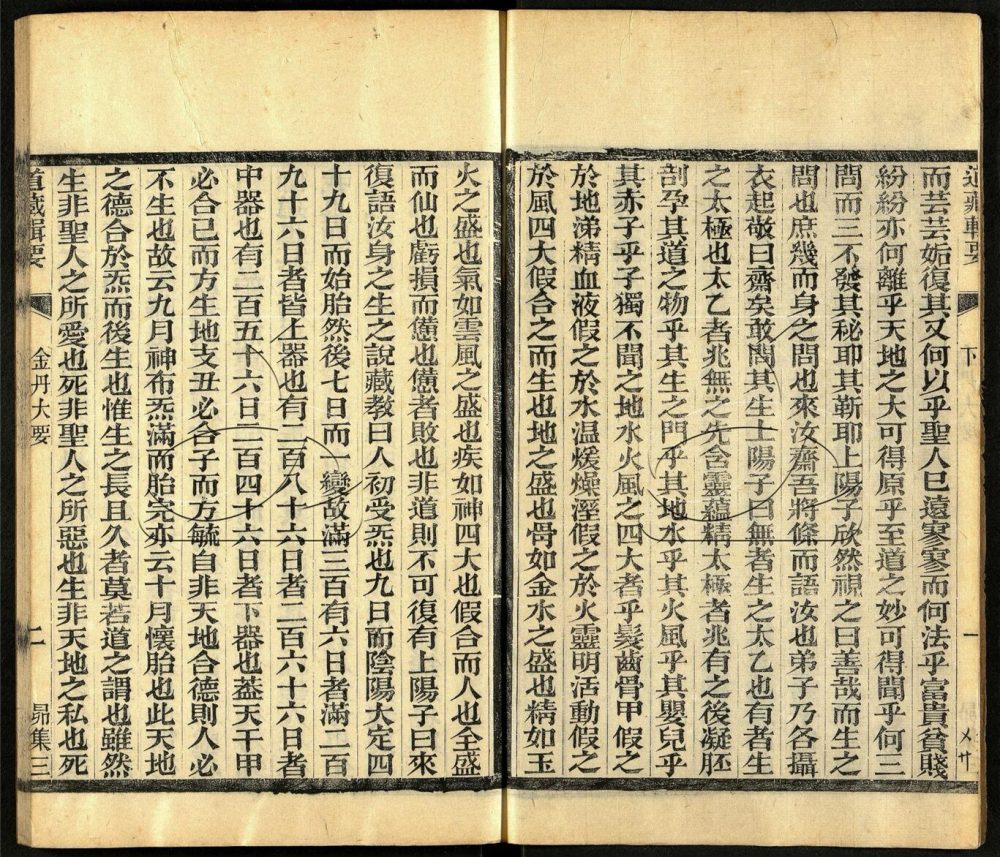 道藏輯要
下
一
而芸芸姤復其又何以乎聖人巳遠寥寥而何法乎富貴貧賤
紛紛亦何離乎天地之大可得原乎至道之妙可得聞乎何三
問而三不發其秘耶其靳耶上陽子欣然視之曰善哉而生之
問也庶幾而身之問也來汝齋吾將條而語汝也弟子乃各攝
衣起敬曰齋矣敢問其生上陽子曰無者生之太乙也有者生
之太極也太乙者兆無之先含靈蘊精太極者兆有之後凝胚
剖孕其道之物乎其生之門乎其地水乎其火風乎其嬰兒乎
其赤子乎子獨不聞之地水火風之四大者乎髮齒骨甲假之
於地涕精血液假之於水温煖燥滛假之於火靈明活動假之
於風四大假合之而生也地之盛也骨如金水之盛也精如玉
火之盛也氣如雲風之盛也疾如神四大也假合而人也全盛
而仙也虧損而憊也憊者敗也非道則不可復有上陽子曰來
復語汝身之生之說藏教曰人初受炁也九日而陰陽大定四
十九日而始胎然後七日而一變故滿三百有六日者滿二百
九十六日者皆上器也有二百八十六日者二百六十六日者
中器也有二百五十六日二百四十六日者下器也葢天干甲
必合己而方生地支丑必合子而方毓自非天地合德則人必
不生也故云九月神布炁滿而胎完亦云十月懷胎也此天地
之德合於炁而後生也惟生之長且久者莫若道之謂也雖然
生非聖人之所愛也死非聖人之所惡也生非天地之私也死
道藏輯要
金丹大要
二
昴集三